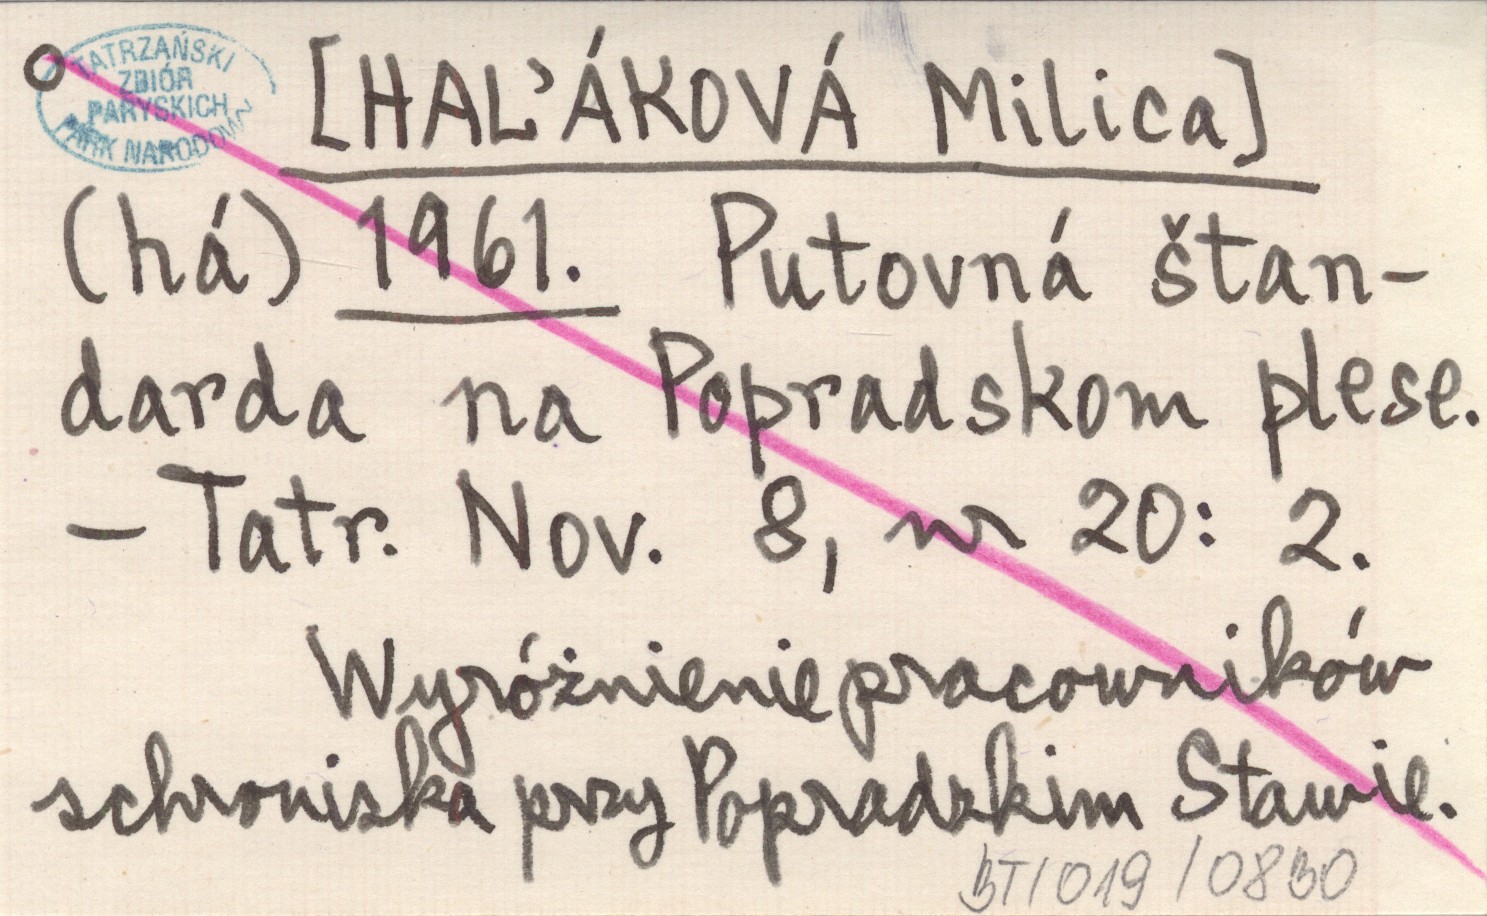 TATRZAŃSKI
ZBIÓR
PARYSKICH
PARK NARODOWY
[HAL'ÁKOVÁ Milica]
(há) 1961. Putovná štan-
darda na Popradskom plese.
- Tatr. Nov. 8, nr 20: 2.
Wyróżnienie pracowników
schroniska przy Popradzkim Stawie.
BT/019/0830